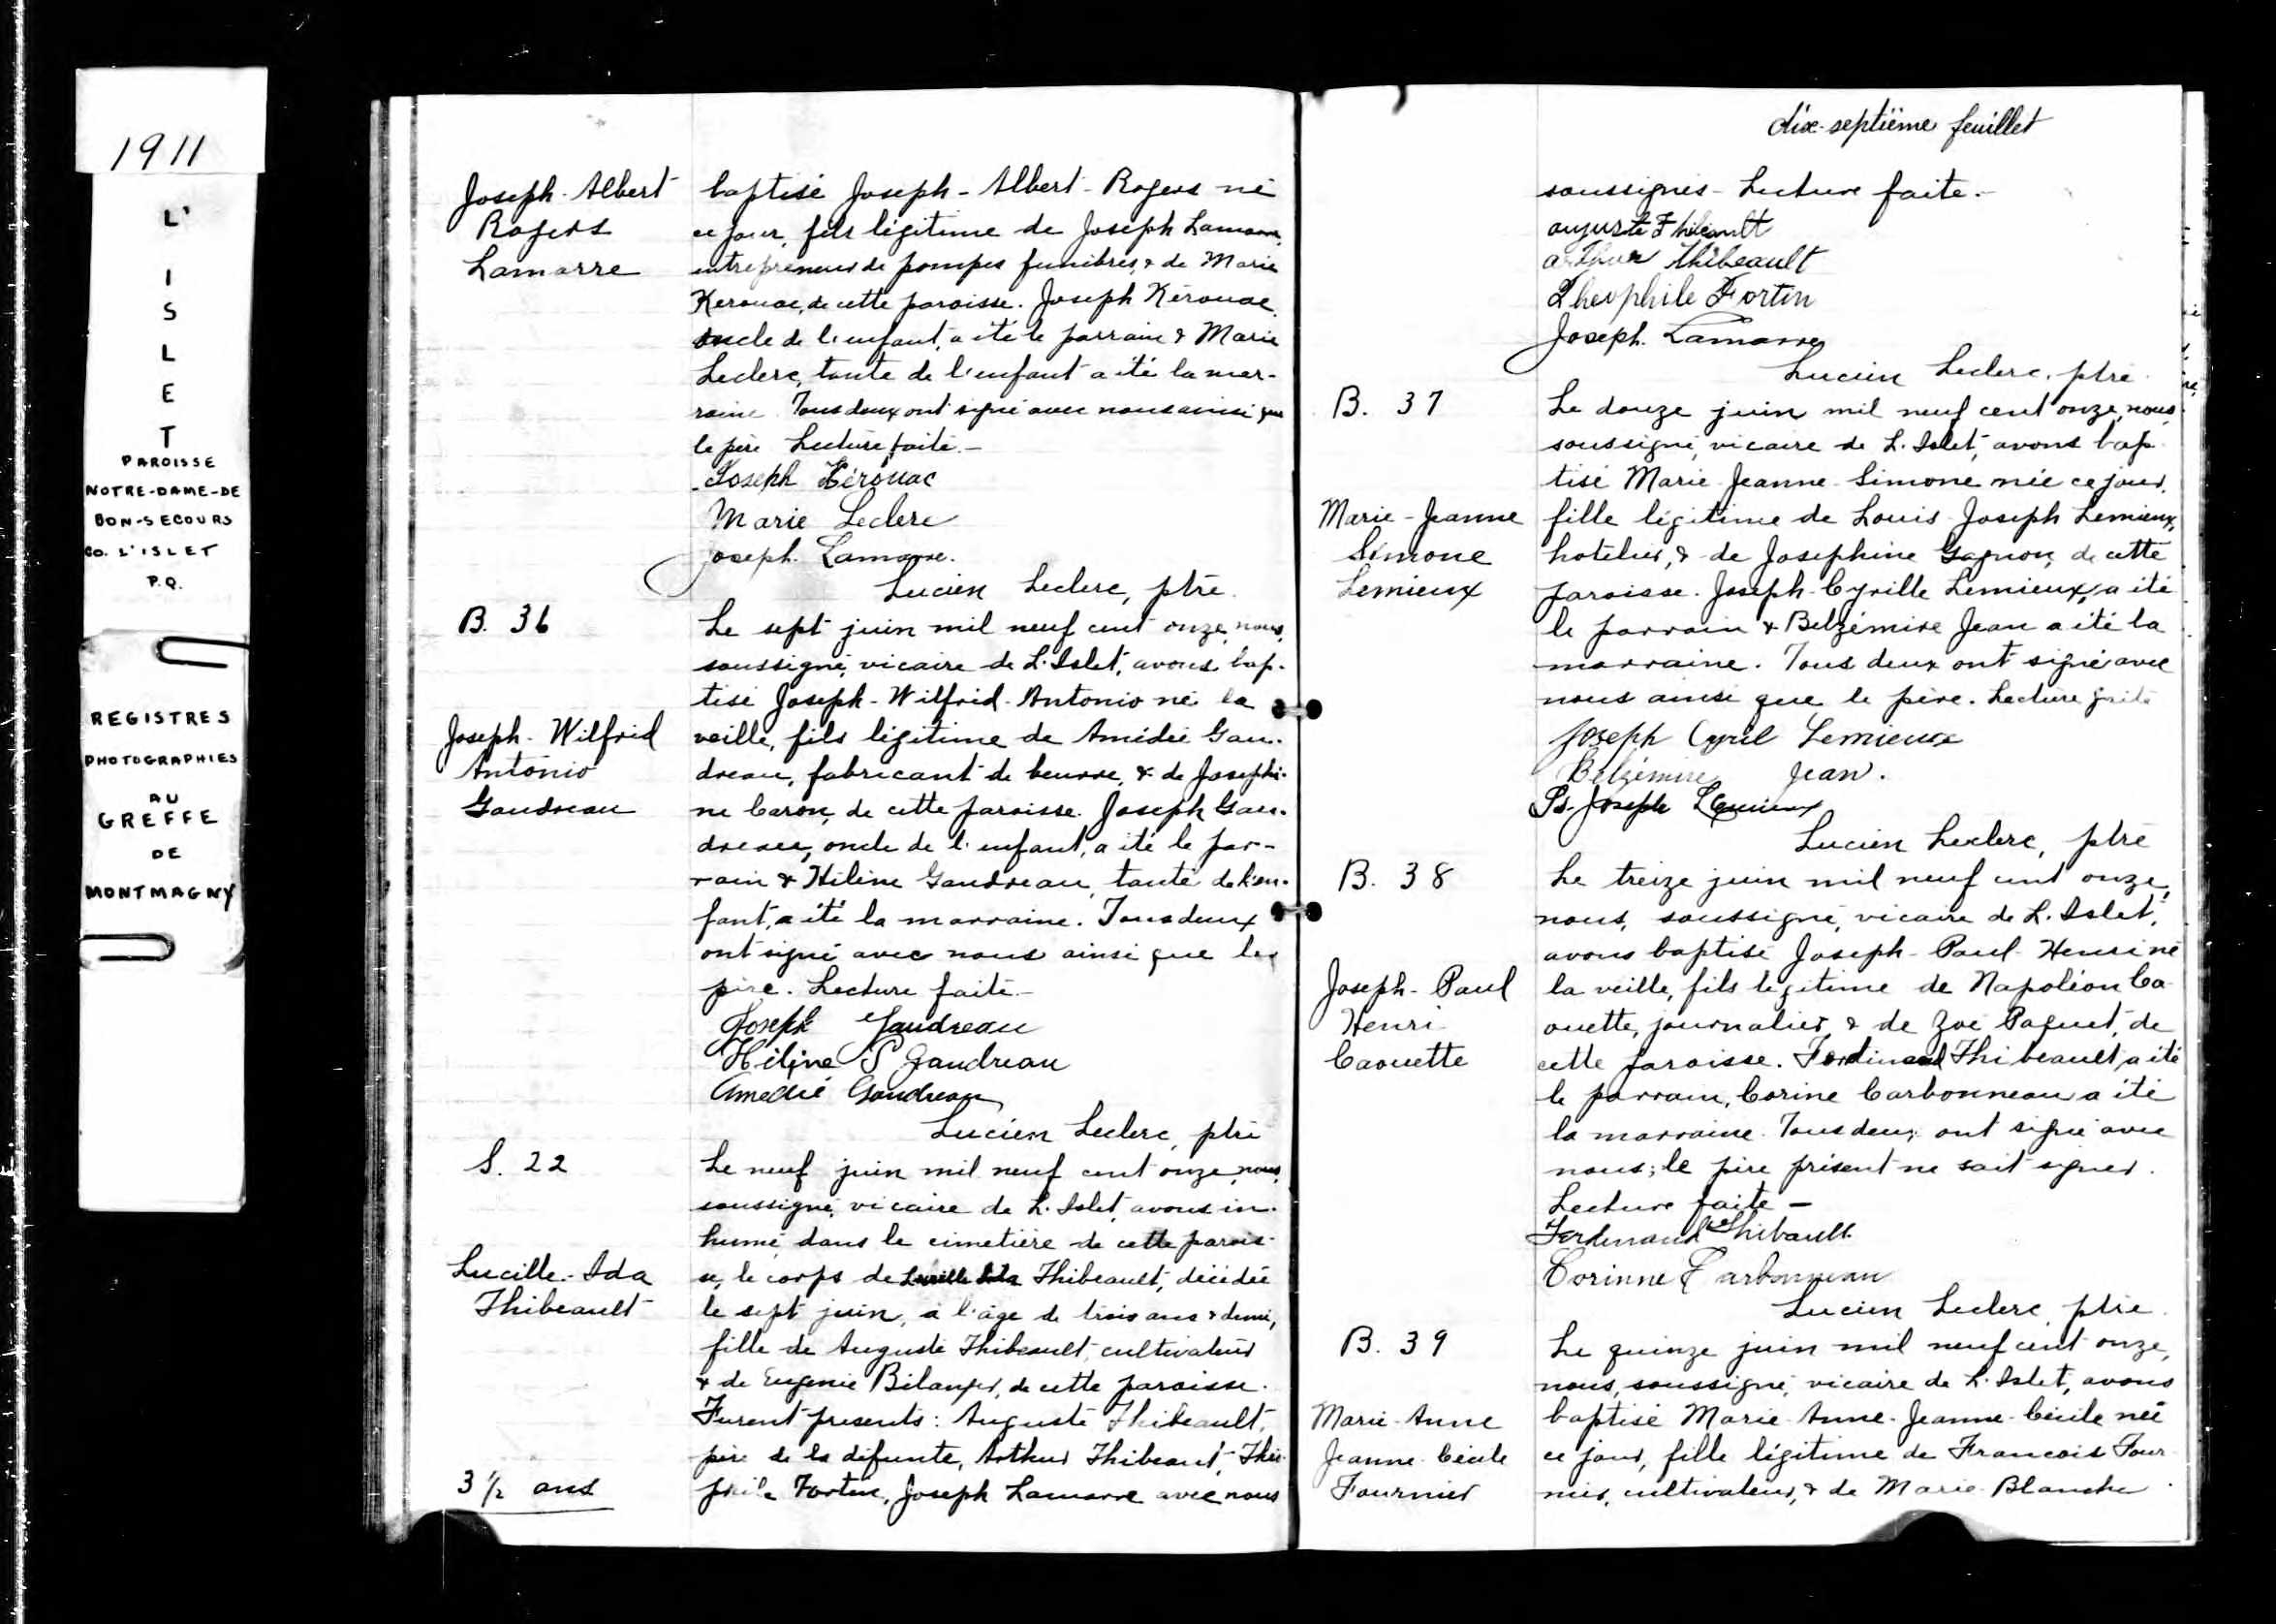 1911
L'
I
S
L
E
T
PAROISSE
NOTRE-DAME-DE
BON-SECOURS
Co. L'ISLET
P.Q.
REGISTRES
PHOTOGRAPHIES
AU
GREFFE
DE
MONTMAGNY
Joseph-Albert
Rogers
Lamarre
baptisé Joseph-Albert-Rogers né
ce jour, fils légitime de Joseph Lamarre,
entrepreneur de pompes funèbres, & de Marie
Kerouac, de cette paroisse. Joseph Kérouac,
oncle de l'enfant, a été le parrain & Marie
Leclerc, tante de l'enfant a été la mar-
raine. Tous deux ont signé avec nous ainsi que
le père Lecture faite.-
Joseph Kérouac
Marie Leclerc
Joseph. Lamarre.
Lucien Leclerc, ptre.
B. 36
Joseph-Wilfrid
Antonio
Gaudreau
Le sept juin mil neuf cent onze, nous,
soussigné, vicaire de L'Islet, avons bap-
tisé Joseph-Wilfrid-Antonio né la
veille, fils légitime de Amédée Gau-
dreau, fabricant de beurre, & de Josephi-
ne Caron, de cette paroisse. Joseph Gau-
dreau, oncle de l'enfant, a été le par-
rain & Hélène Gaudreau, tante de l'en-
fant, a été la marraine. Tous deux
ont signé avec nous ainsi que le
père. Lecture faite.-
Joseph Gaudreau
Hélène P Gaudreau
Amédée Gaudreau
Lucien Leclerc, ptre
S. 22
Lucille-Ida
Thibeault
3 1/2 ans
Le neuf juin mil neuf cent onze, nous,
soussigné, vicaire de L'Islet, avons in-
humé dans le cimetière de cette parois-
se, le corps de Lucille Ida Thibeault, décédée
le sept juin, à l'âge de trois ans & demi,
fille de Auguste Thibeault, cultivateur
& de Eugenie Bélanger, de cette paroisse.
Furent présents: Auguste Thibeault,
père de la défunte, Arthur Thibeault, Théo-
phile Fortin, Joseph Lamarre avec nous
dix-septième feuillet
soussignés - Lecture faite.-
auguste Thibeault
arthur Thibeault
Theophile Fortin
Joseph. Lamarre
Lucien Leclerc. ptre.
B. 37
Marie-Jeanne
Simone
Lemieux
Le douze juin mil neuf cent onze, nous,
soussigné, vicaire de L'Islet, avons bap-
tisé Marie-Jeanne-Simone née ce jour,
fille légitime de Louis-Joseph Lemieux,
hotelier, & de Josephine Gagnon, de cette
paroisse. Joseph-Cyrille Lemieux, a été
le parrain & Belzémire Jean a été la
marraine. Tous deux ont signé avec
nous ainsi que le père. Lecture faite
Joseph Cyril Lemieux
Belzémire Jean.
Joseph Lemieux
Lucien Leclerc, ptre
B. 38
Joseph-Paul
Henri
Caouette
Le treize juin mil neuf cent onze,
nous, soussigné, vicaire de L'Islet,
avons baptisé Joseph-Paul-Henri né
la veille, fils légitime de Napoléon Ca-
ouette, journalier, & de Zoé Paquet, de
cette paroisse. Ferdinand Thibeault, a été
le parrain, Corine Carbonneau a été
la marraine. Tous deux ont signé avec
nous; le père présent ne sait signer.
Lecture faite -
Ferdinand Thibault
Corinne Carbonneau
Lucien Leclerc, ptre.
B. 39
Marie-Anne
Jeanne-Cécile
Fournier
Le quinze juin mil neuf cent onze,
nous, soussigné, vicaire de L'Islet, avons
baptisé Marie-Anne-Jeanne-Cécile née
ce jour, fille légitime de Francois Four-
nier, cultivateur, & de Marie-Blanche